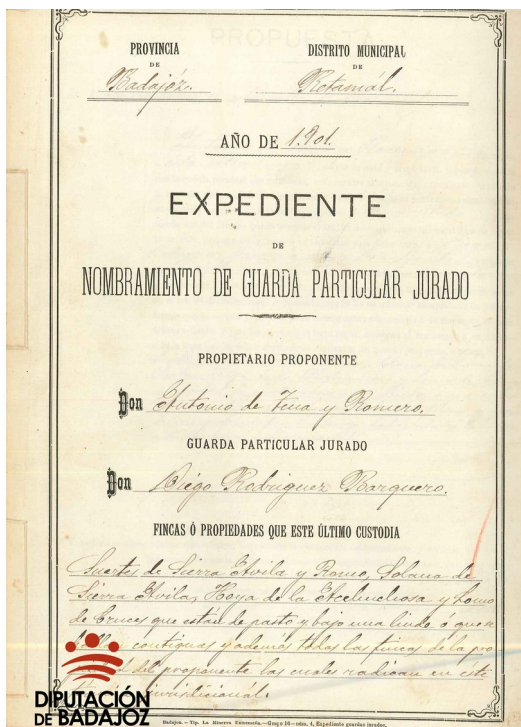 PROVINCIA
DE
Badajóz.
DISTRITO MUNICIPAL
DE
Retamál.
AÑO DE 1.901.
EXPEDIENTE
DE
NOMBRAMIENTO DE GUARDA PARTICULAR JURADO
PROPIETARIO PROPONENTE
Don Antonio de Tena y Romero.
GUARDA PARTICULAR JURADO
Don Diego Rodriguez Barquero.
FINCAS Ó PROPIEDADES QUE ESTE ÚLTIMO CUSTODIA
Suertes de Sierra Avila y Romo, Solana de
Sierra Avila, Hoya de la y Lomo
de Cruces que están de pasto y bajo una linde ó que
contiguas y además todas las fincas de la
del proponente las cuales radican en éste
jurisdiccional.
DIPUTACIÓN
DE BADAJOZ
Badajoz.—Tip. La Minerva Extremeña.—Grupo 16—núm. 4, Expediente guardas jurados.